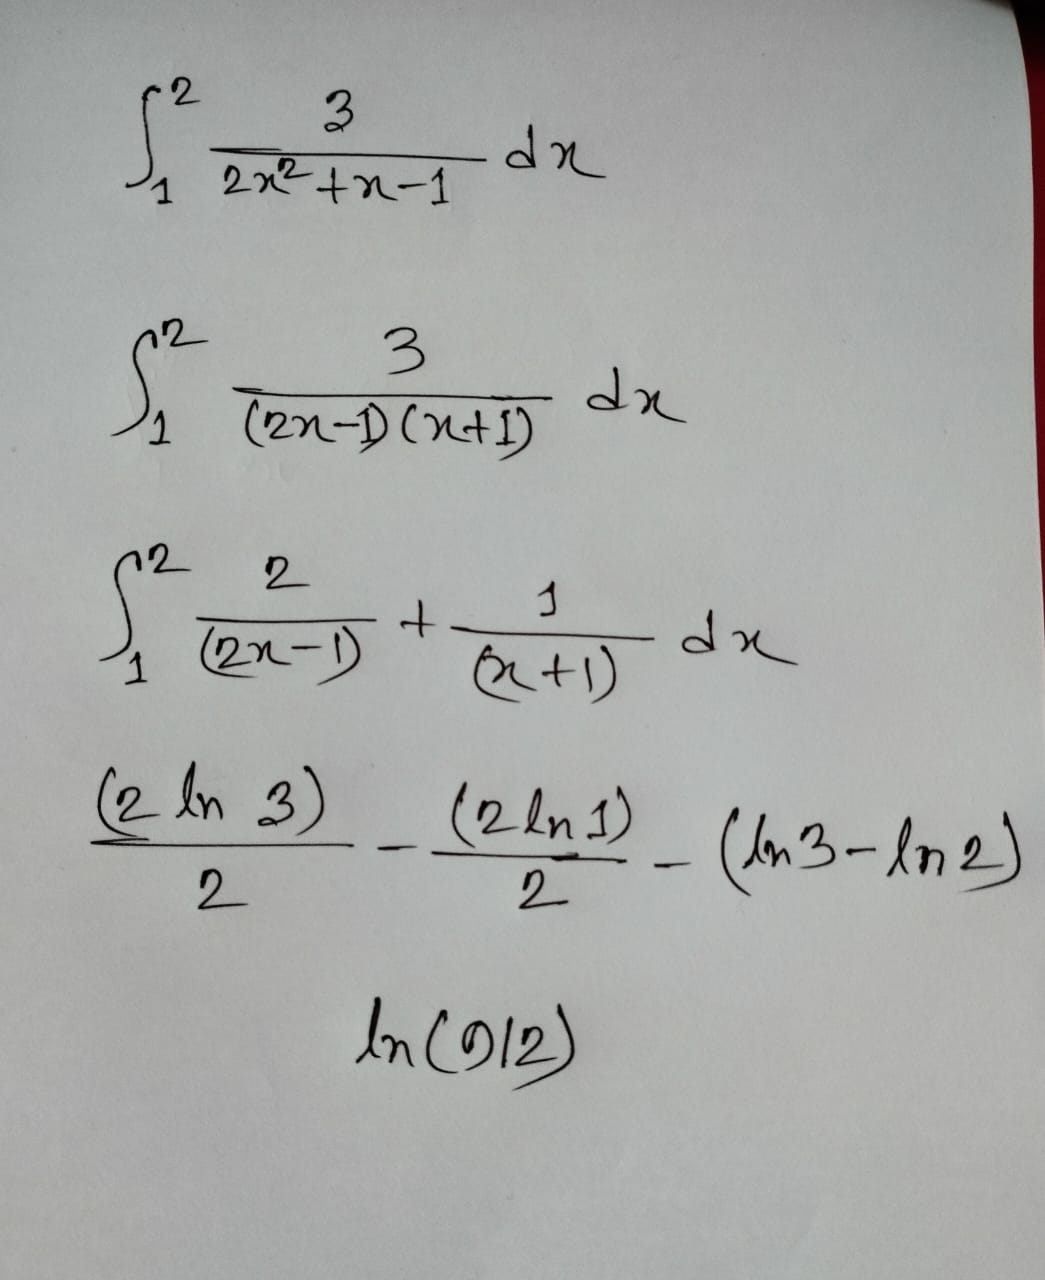 ∫₁² 3/(2x²+x-1) dx
∫₁² 3/((2x-1)(x+1)) dx
∫₁² 2/(2x-1) + 1/(x+1) dx
(2 ln 3)/2 - (2 ln 1)/2 - (ln 3 - ln 2)
ln(9/2)